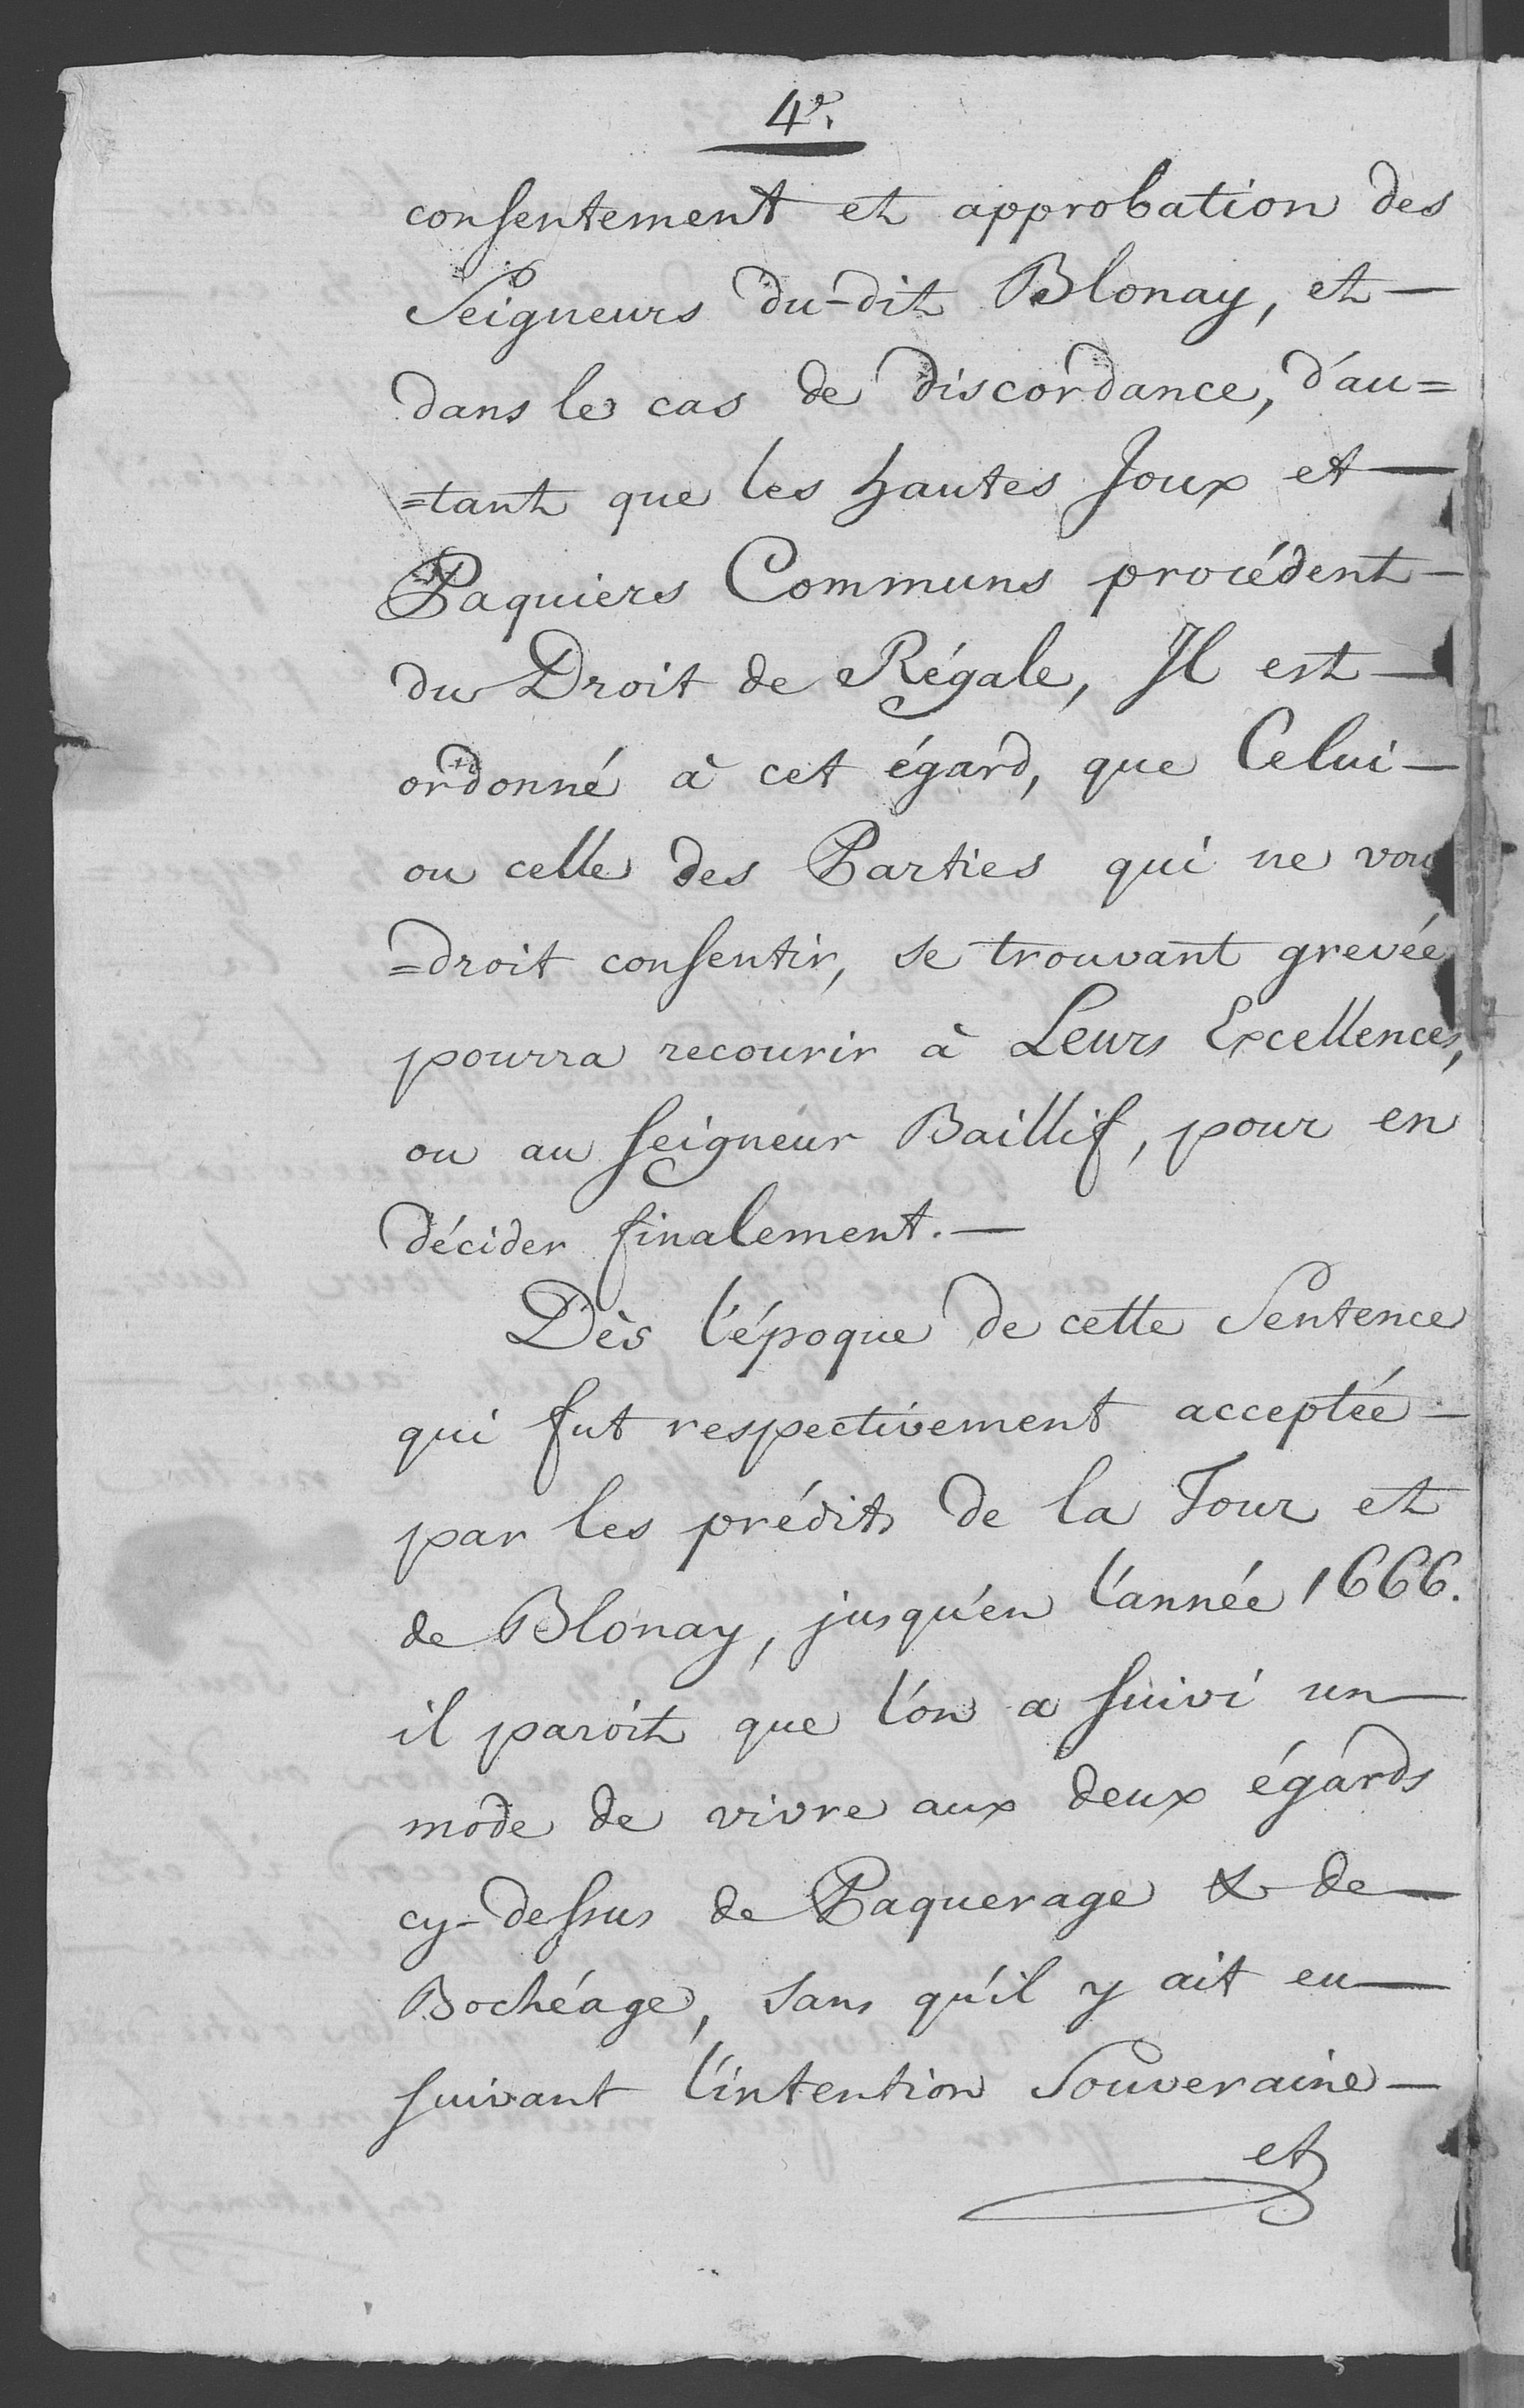 4e.
consentement et approbation des
Seigneurs du-dit Blonay, et —
dans le cas de discordance, d'au=
=tant que les hautes Joux et —
Paquiers Communs procédent —
du Droit de Régale, Il est —
ordonné à cet égard, que Celui —
ou celle des Parties qui ne vou
=droit consentir, se trouvant grevée
pourra recourir à Leurs Excellences,
ou au Seigneur Baillif, pour en
décider finalement. —
Dès l'époque de cette Sentence
qui fut respectivement acceptée —
par les prédits de la Tour et
de Blonay, jusqu'en l'année 1666.
il paroit que l'on a suivi un —
mode de vivre aux deux égards
cy-dessus de Paquerage & de —
Bochéage, sans qu'il y ait eu —
suivant l'intention Souveraine —
et